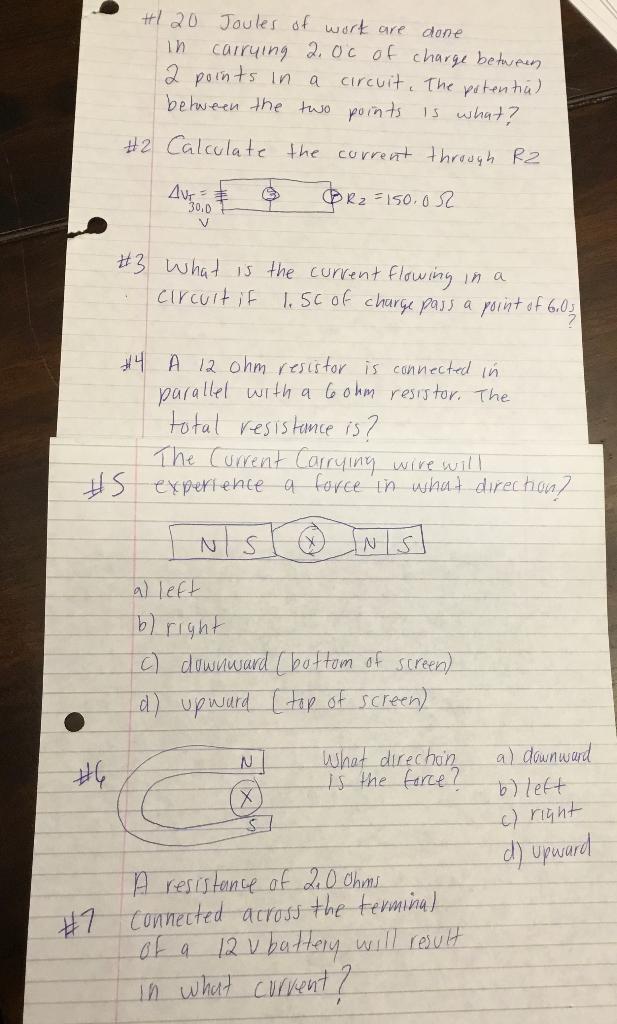 #1 20 Joules of work are done
in carrying 2.0c of charge between
2 points in a circuit. The potential
between the two points is what?
#2 Calculate the current through R2
ΔVT =
30.0
V
R2 = 150.0 Ω
#3 What is the current flowing in a
circuit if 1.5C of charge pass a point of 6.0s
?
#4 A 12 ohm resistor is connected in
parallel with a 6 ohm resistor. The
total resistance is?
The Current Carrying wire will
#5 experience a force in what direction?
N S X N S
a) left
b) right
c) downward (bottom of screen)
d) upward (top of screen)
#6 N
X
S
What direction
is the force?
a) downward
b) left
c) right
d) upward
A resistance of 2.0 Ohms
#7 connected across the terminal
of a 12 V battery will result
in what current?